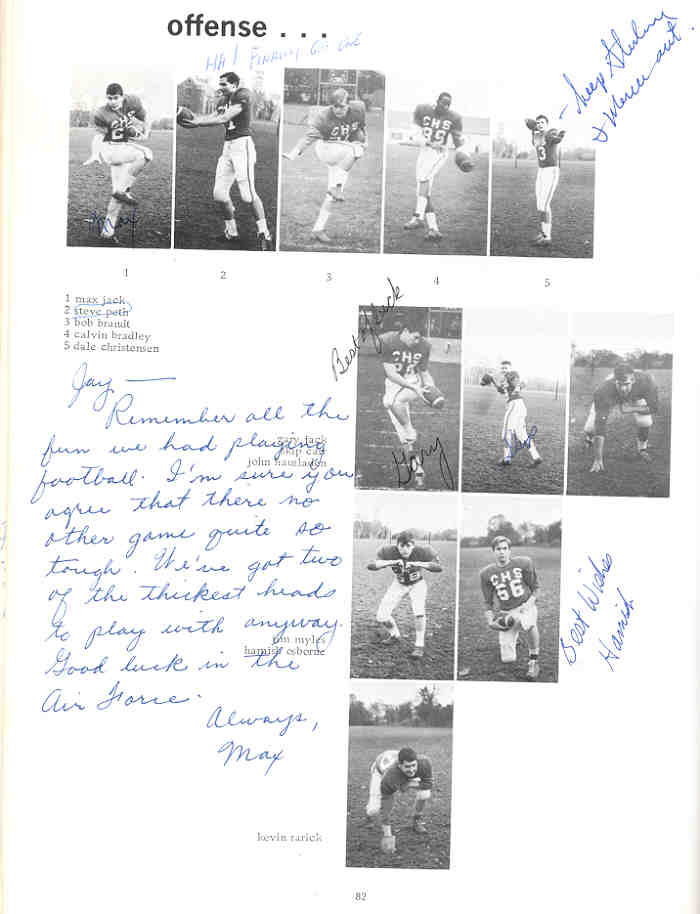 offense . . .
HA! FINALLY GOT ONE
- Sheep Stealing
& Merriment.
CHS
2
1
CHS
CHS
89
3
Max
1
2
3
4
5
1 max jack
2 steve poth
3 bob brandt
4 calvin bradley
5 dale christensen
Best of luck
CHS
Gary
Steve
Jay —
Remember all the
fun we had playing
football. I'm sure you
agree that there no
other game quite so
tough. We've got two
of the thickest heads
to play with anyway.
Good luck in the
Air Force.
Always,
Max
gary jack
skip carl
john hausladen
CHS
66
Best Wishes
Hamish
tim myles
hamish osborne
kevin rarick
82